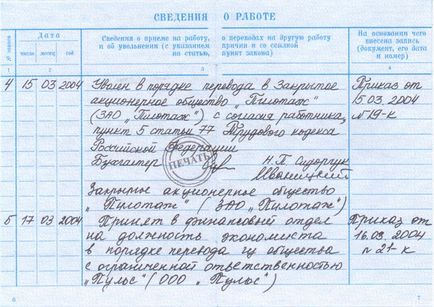 СВЕДЕНИЯ О РАБОТЕ
№ записи
Дата
число месяц год
Сведения о приеме на работу, о переводах на другую работу
и об увольнении (с указанием причин и со ссылкой
на статью, пункт закона)
На основании чего
внесена запись
(документ, его дата
и номер)
1 2 3 4
4 15 03 2004 Уволен в порядке перевода в Закрытое Приказ от
акционерное общество „Пилотаж" 15.03.2004
(ЗАО „Пилотаж") с согласия работника, №19-к
пункт 5 статьи 77 Трудового кодекса
Российской Федерации
Бухгалтер Н.П. Сидорчук
ПЕЧАТЬ
Закрытое акционерное общество
„Пилотаж" (ЗАО „Пилотаж")
5 17 03 2004 Принят в финансовый отдел Приказ от
на должность экономиста 16.03.2004
в порядке перевода из общества №21-к
с ограниченной ответственностью
„Пульс" (ООО „Пульс")
6 7